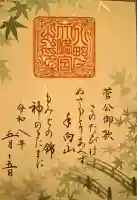 菅公御歌
このたびは
ぬさもとりあへず
手向山
もみぢの錦
神のまにまに
令和八年
五月十五日